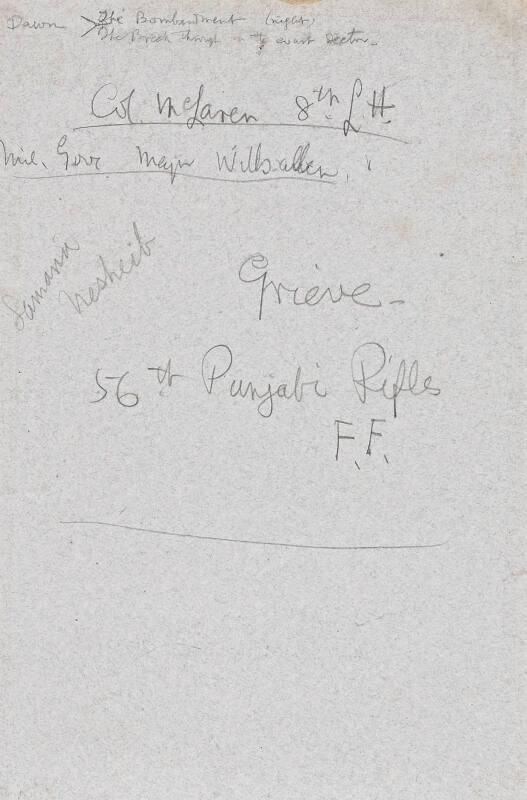 Dawn The Bombardment (night)
The Break Through in the coast sector.
Col. McLaren 8th L.H.
Mil. Govr Major Willsallen.
Samann
Nesheib
Grieve -
56th Punjabi Rifles
F.F.